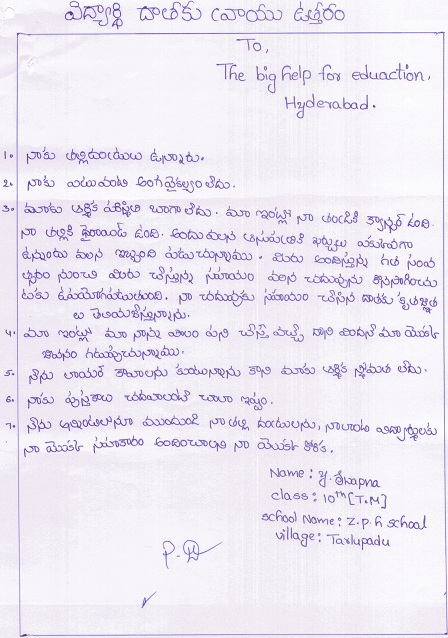 విద్యార్థి దాతకు వ్రాయు ఉత్తరం
To,
The big help for eduaction,
Hyderabad.
1. నాకు తల్లిదండ్రులు ఉన్నారు.
2. నాకు ఎటువంటి అంగవైకల్యం లేదు.
3. మాకు ఆర్థిక పరిస్థితి బాగా లేదు. మా ఇంట్లో నా తండ్రికి క్యాన్సర్ ఉంది.
నా తల్లికి థైరాయిడ్ ఉంది. అందువలన ఆసుపత్రికి ఖర్చులు ఎక్కువగా
ఉన్నందు వలన ఇబ్బంది పడుచున్నాము. మీరు అందిస్తున్న గత సంవ
త్సరం నుంచి మీరు చేస్తున్న సహాయం వలన చదువును కొనసాగించు
టకు ఉపయోగపడుతుంది. నా చదువుకు సహాయం చేసిన దాతకు కృతజ్ఞత
లు తెలియజేస్తున్నాను.
4. మా ఇంట్లో మా నాన్న పొలం పని చేస్తే వచ్చే దాని మీదనే మా యొక్క
జీవనం గడుపుచున్నాము.
5. నేను లాయర్ కావాలను కుంటున్నాను కాని మాకు ఆర్థిక స్తోమత లేదు.
6. నాకు పుస్తకాలు చదవాలంటే చాలా ఇష్టం.
7. నేను ముందుండి నా తల్లి దండ్రులను, నాలాంటి విద్యార్థులకు
నా యొక్క సహకారం అందించాలని నా యొక్క కోరిక.
Name: Y. Swapna
class: 10th [T.M]
school Name: Z.P.h school
village: Tarlupadu